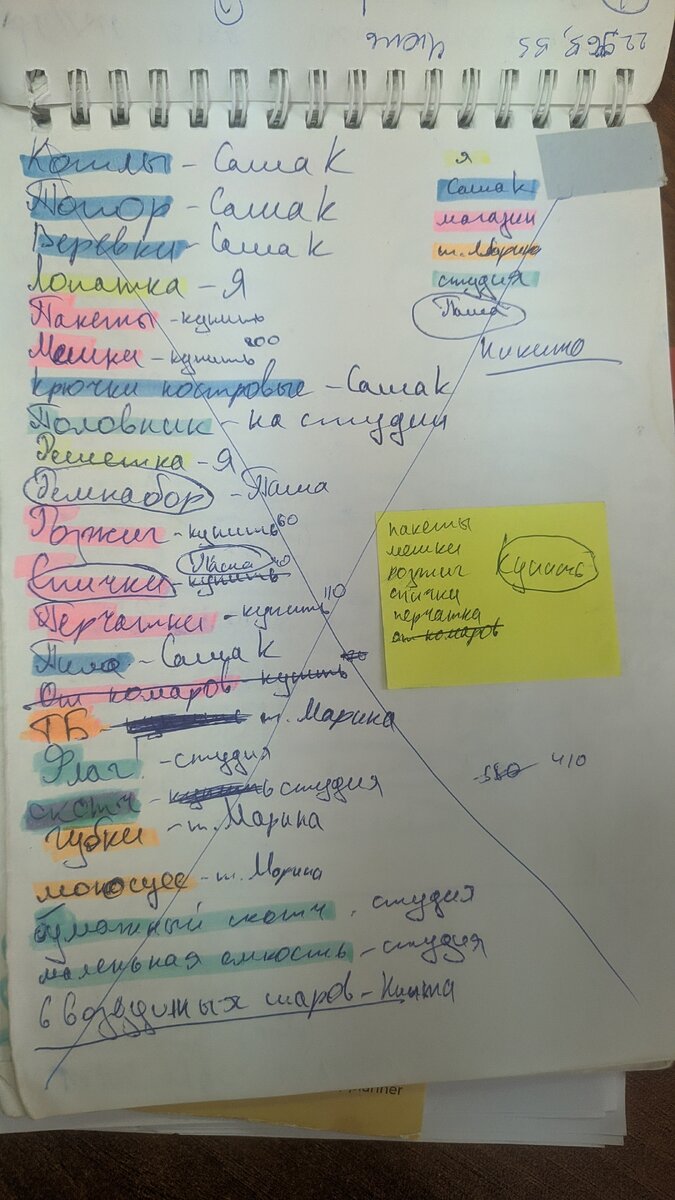 Июнь
Котлы - Саша К
Топор - Саша К
Веревки - Саша К
Лопатка - Я
Пакеты - купить
Мешки - купить 200
крючки костровые - Саша К
Половник - на студии
Решетка - Я
Ремнабор - Паша
Розжиг - купить 60
Паша
Спички - купить
Перчатки - купить 110
Пила - Саша К
От комаров - купить
ТБ - т. Марина
Флаг - студия
скотч - студия
Губки - т. Марина
моюсущее - т. Марина
бумажный скотч - студия
маленькая емкость - студия
6 воздушных шаров - Никита
я
Саша К
магазин
т. Марина
студия
Паша
Никита
пакеты
мешки
розжиг
спички
перчатка
от комаров
Купить
410
planner